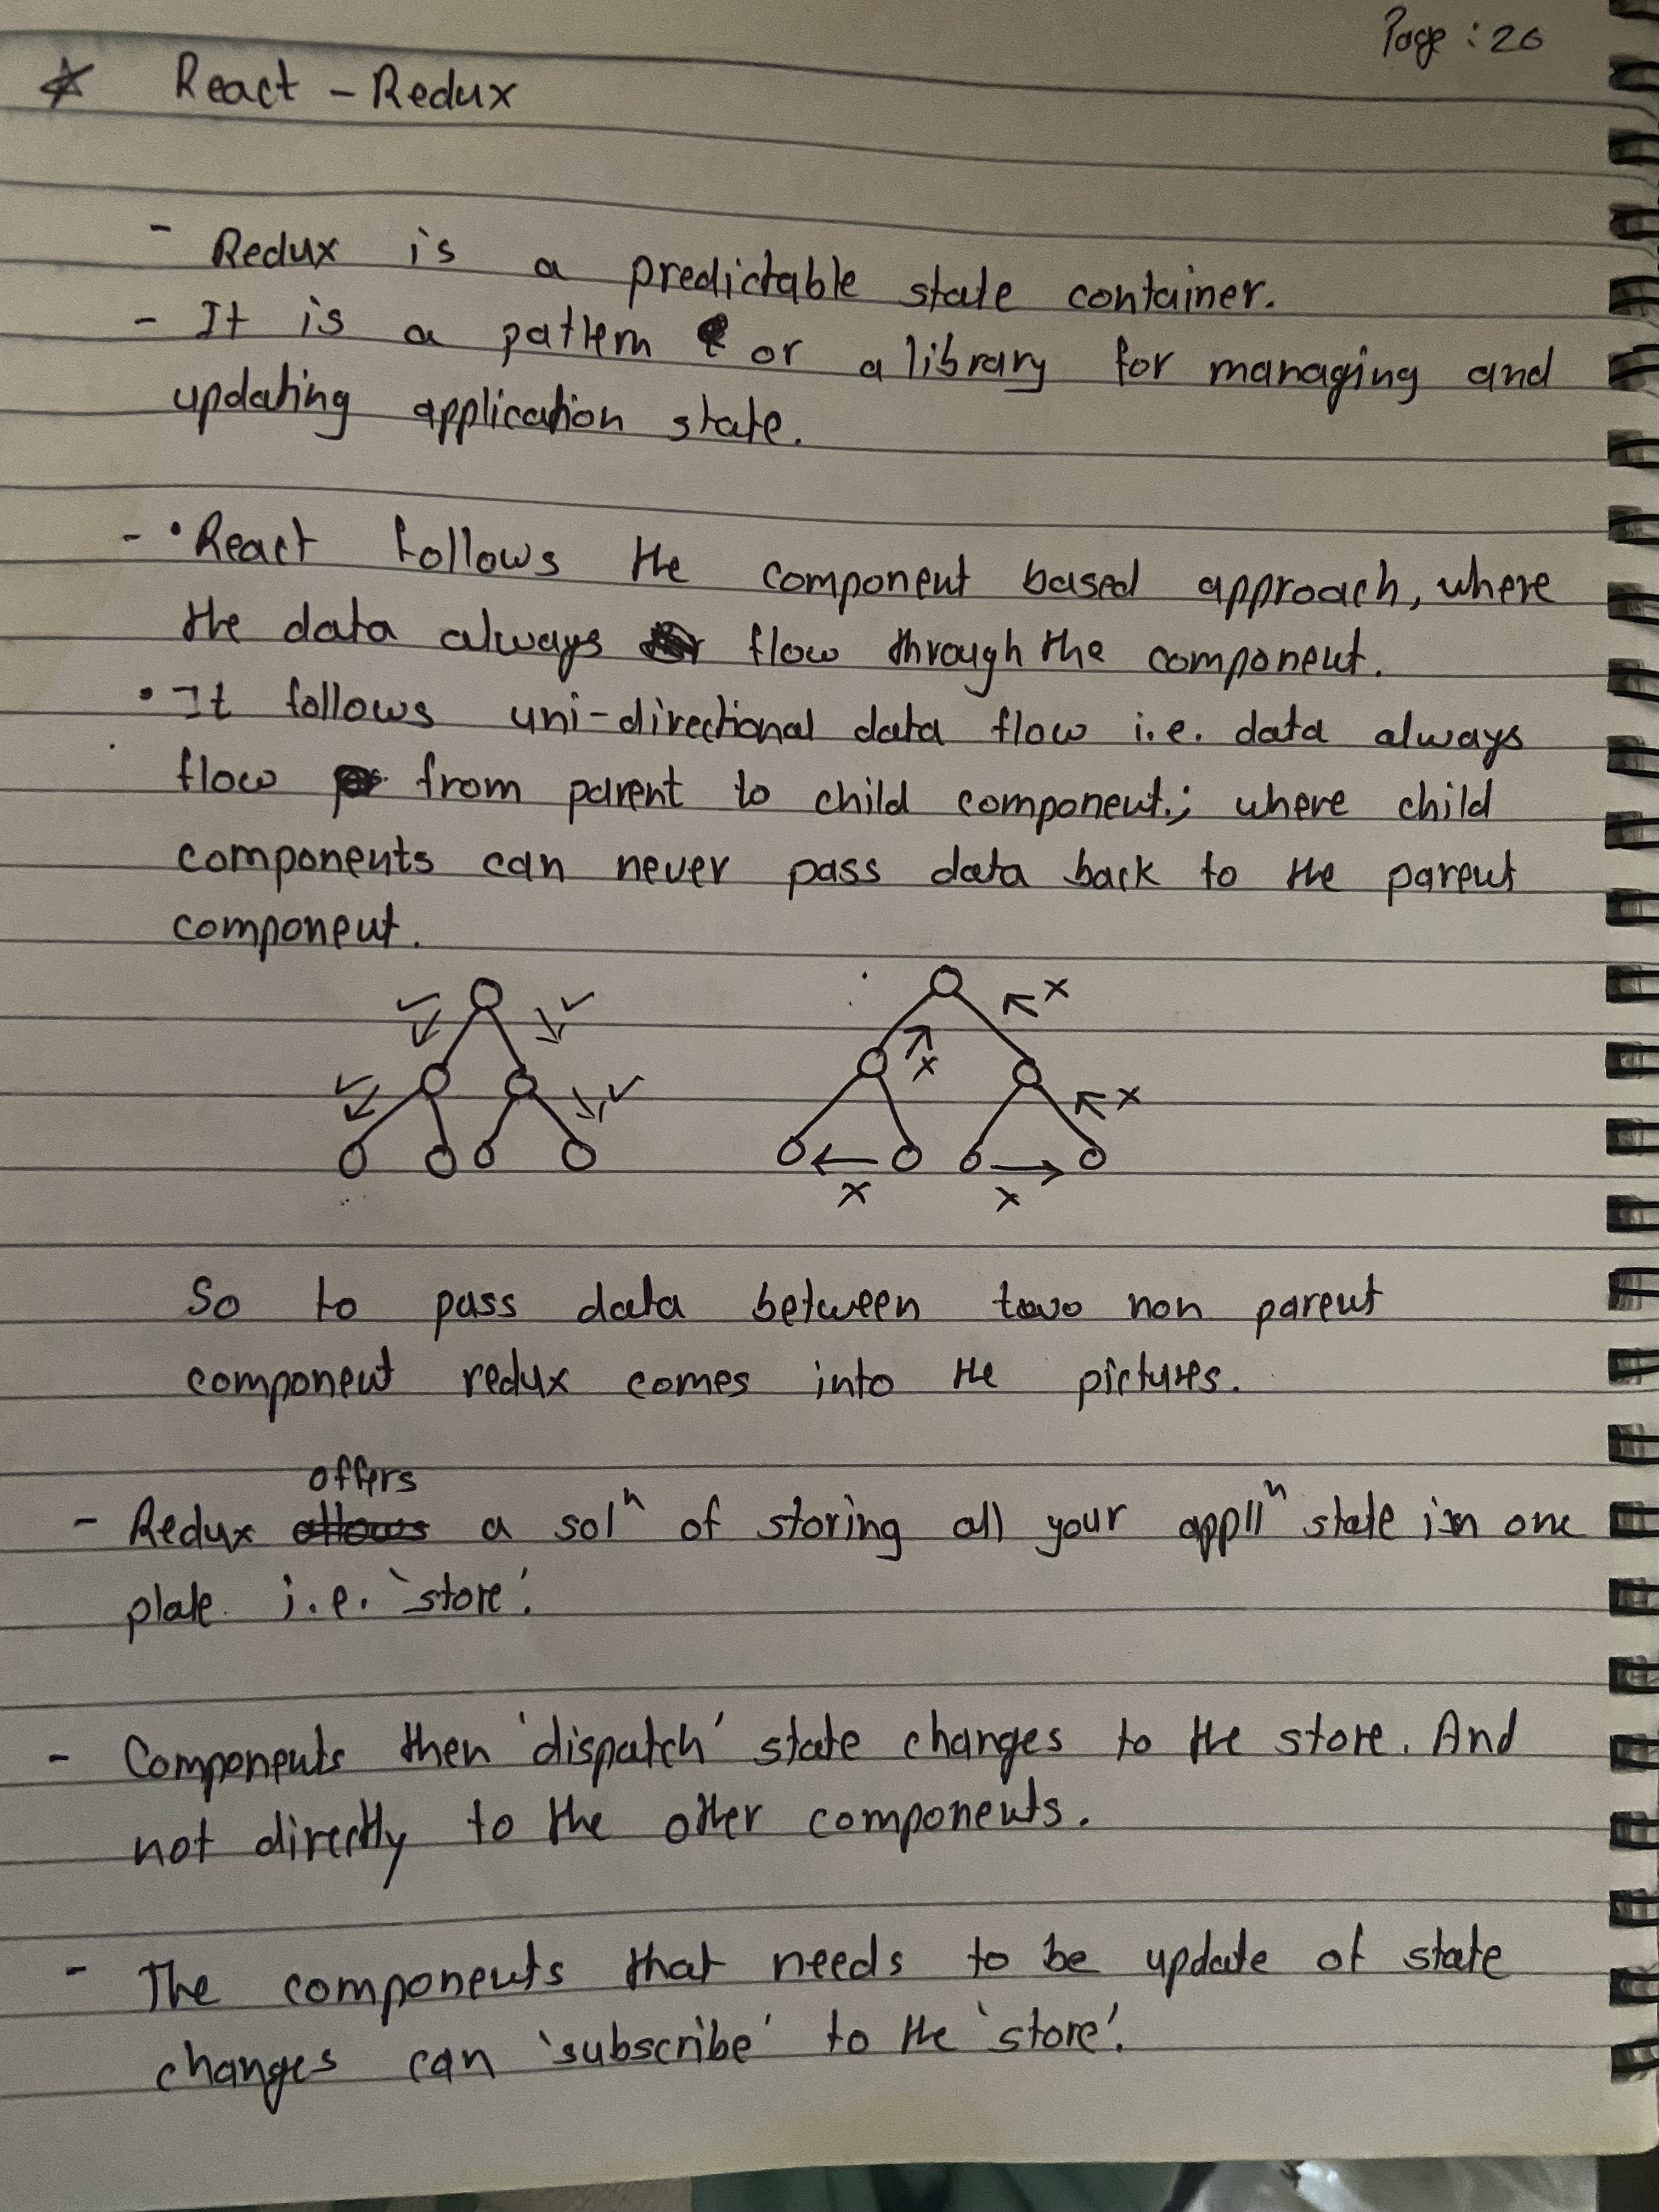 Page : 26
* React - Redux
- Redux is a predictable state container.
- It is a pattern or a library for managing and
updating application state.
- • React follows the component based approach, where
the data always flow through the component.
• It follows uni-directional data flow i.e. data always
flow from parent to child component.; where child
components can never pass data back to the parent
component.
✓ ✓ x
x
✓ ✓ x
x x
So to pass data between two non parent
component redux comes into the pictures.
offers
- Redux allows a solⁿ of storing all your applⁿ state in one
plate i.e. 'store'.
- Components then 'dispatch' state changes to the store. And
not directly to the other components.
- The components that needs to be update of state
changes can 'subscribe' to the 'store'.